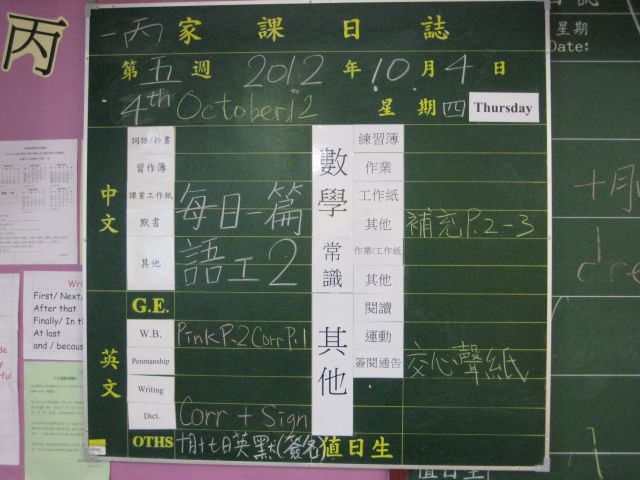 丙
一丙 家課日誌
第五週 2012年10月4日
4th October 12 星期四 Thursday
中文
詞語/抄書
習作簿
課業工作紙
默書
其他
每日一篇
語工2
英文
G.E.
W.B. Pink P.2 Corr P.1
Penmanship
Writing
Dict. Corr + Sign
OTHS 十月十七日英默(簽名)
數學
練習簿
作業
工作紙
其他 補充P.2-3
常識
作業/工作紙
其他
其他
閱讀
運動
簽閱通告 交心聲紙
值日生
星期
Date:
十月
First/ Next/
After that
Finally/ In th
At last
and / becaus
值日生